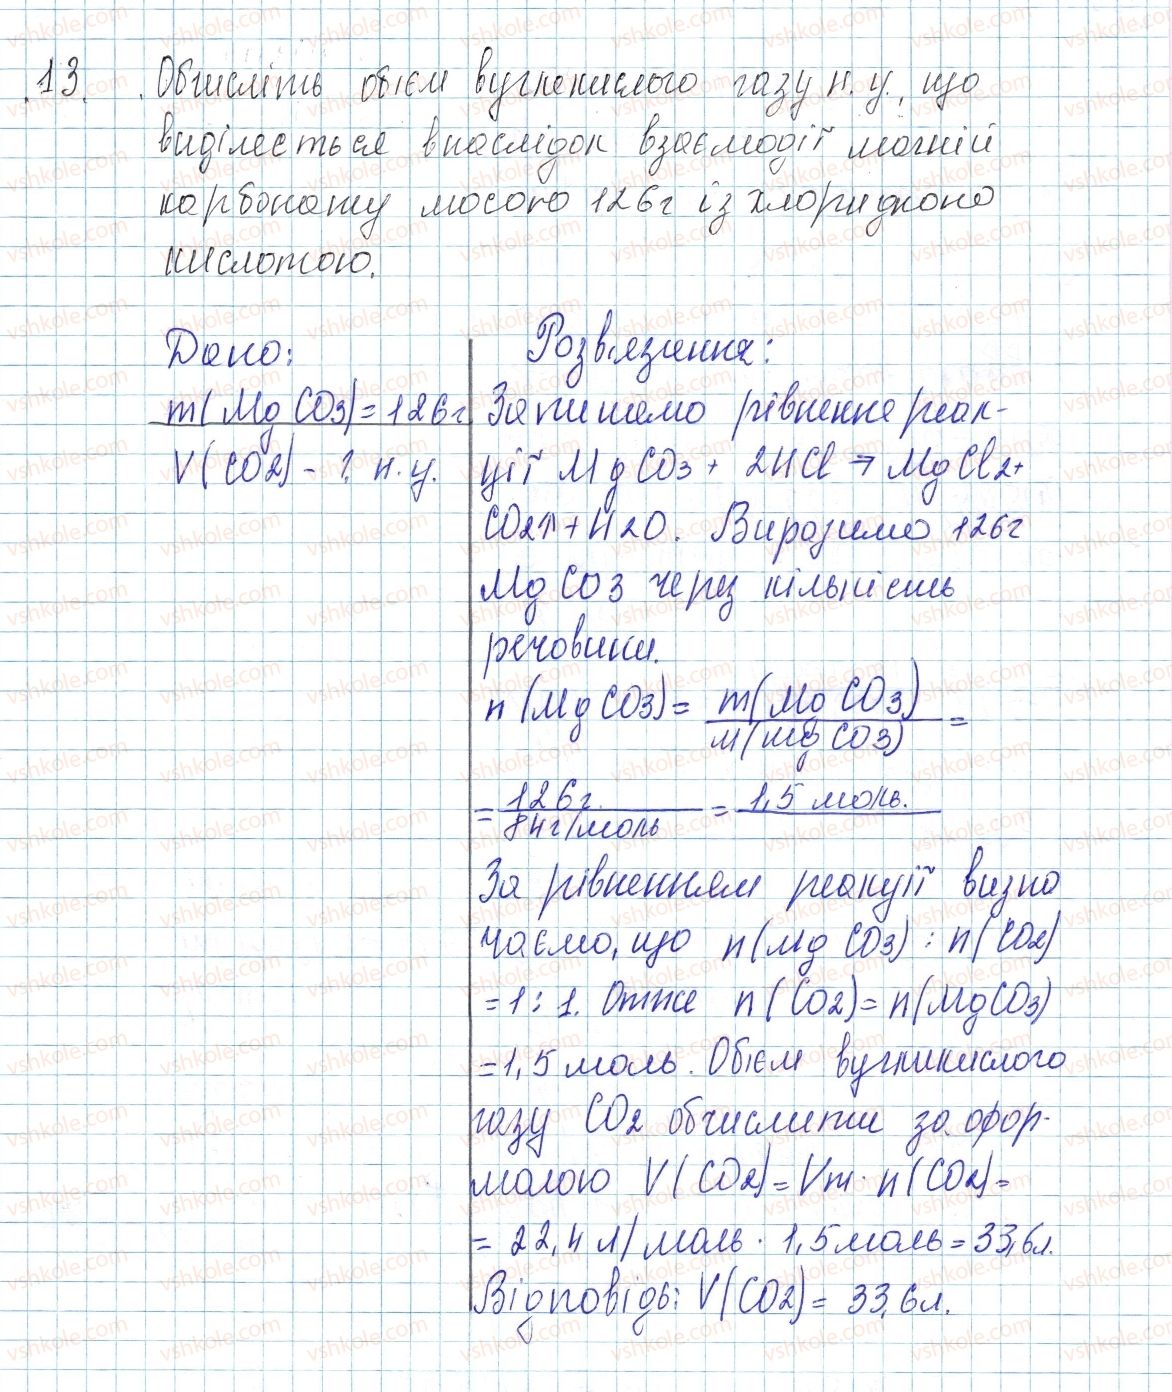 13. Обчисліть об'єм вуглекислого газу н. у., що
виділяється внаслідок взаємодії магній
карбонату масою 126г із хлоридною
кислотою.
Дано:
m(MgCO3)=126г
V(CO2)-? н.у.
Розв'язання:
Запишемо рівняння реак-
ції MgCO3+2HCl→MgCl2+
CO2↑+H2O. Виразимо 126г
MgCO3 через кількість
речовини.
n(MgCO3)= m(MgCO3) =
M(MgCO3)
= 126г = 1,5 моль.
84г/моль
За рівнянням реакції визна
чаємо, що n(MgCO3):n(CO2)
=1:1. Отже n(CO2)=n(MgCO3)
=1,5моль. Об'єм вугликислого
газу CO2 обчислити за фор-
малою V(CO2)=Vm·n(CO2)=
= 22,4л/моль·1,5моль=33,6л.
Відповідь: V(CO2)= 33,6л.